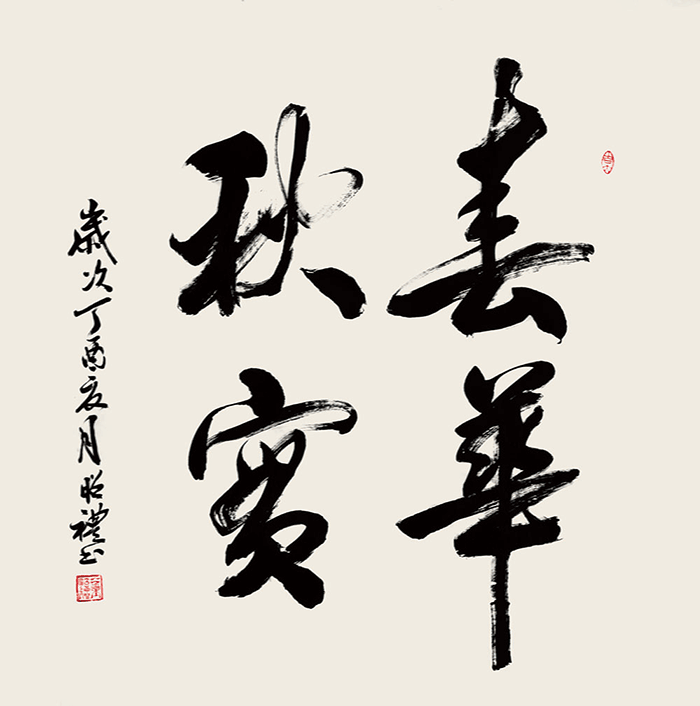 春華
秋實
歲次丁酉夏月昭禮书